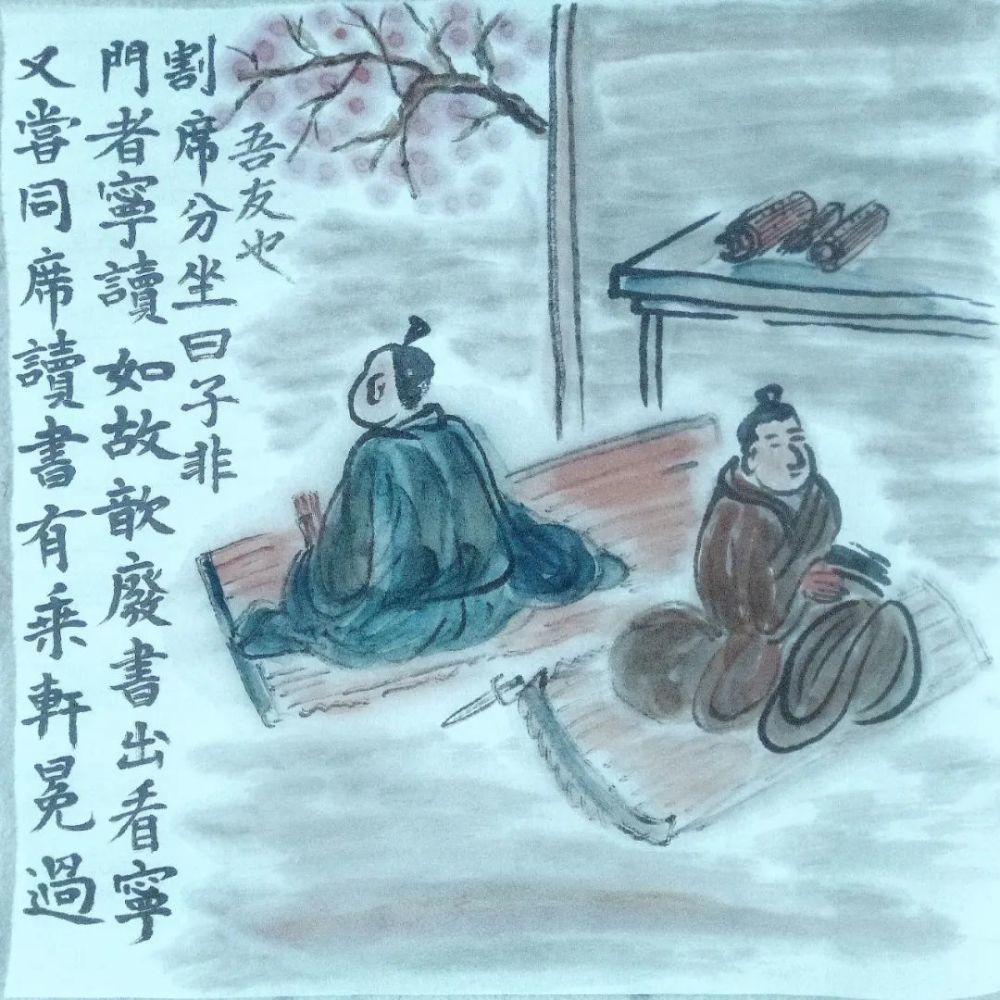 又嘗同席讀書有乘軒冕過
門者寧讀如故歆廢書出看寧
割席分坐曰子非
吾友也